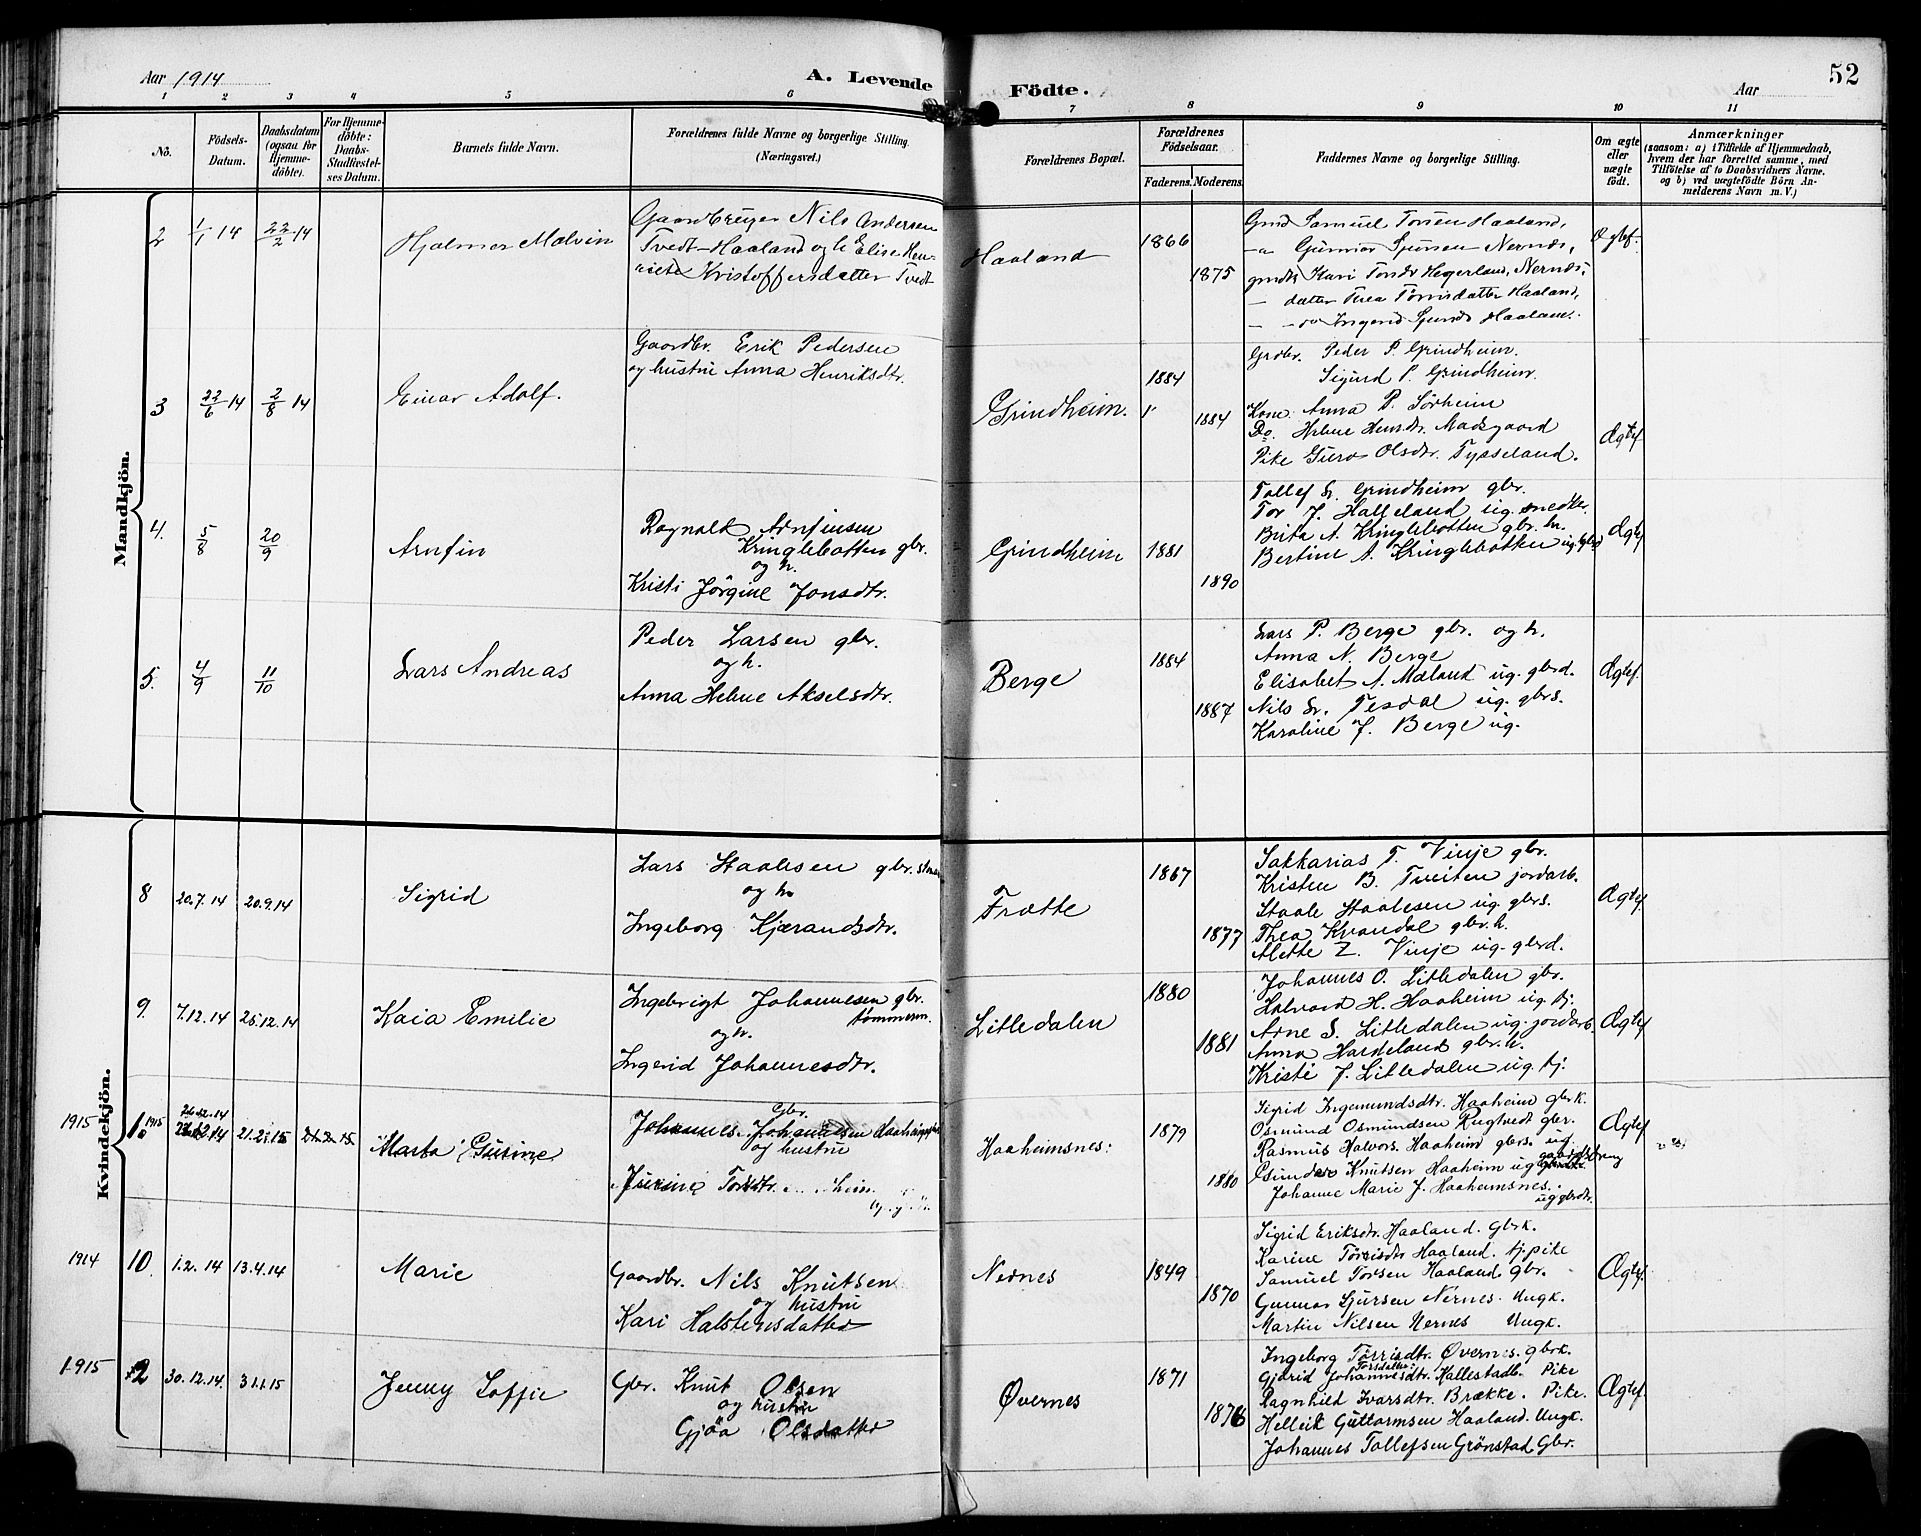 Aar 1914
A. Levende Födte.
Aar
52
1 2 3 4 5 6 7 8 9 10 11
No.
Födsels-Datum.
Daabsdatum (ogsaa for Hjemme-döbte).
For Hjemme-döbte: Daabs-Stadfæstel-ses Datum.
Barnets fulde Navn.
Forældrenes fulde Navne og borgerlige Stilling. (Næringsvei.)
Forældrenes Bopæl.
Forældrenes Födselsaar.
Faderens. Moderens.
Faddernes Navne og borgerlige Stilling.
Om ægte eller uægte födt.
Anmærkninger
(saasom: a) i Tilfælde af Hjemmedaab,
hvem der har forrettet samme, med
Tilföielse af to Daabsvidners Navne,
og b) ved uægtefödte Börn An-
melderens Navn m. V.)
Mandkjön.
2 1/1 14 22/2 14
Hjalmar Malvin
Gaardbruger Nils Andersen
Tvedt-Haaland og h Elise Hen-
riete Kristoffersdatter Tvedt
Haaland
1866
1875
Gmd Samuel Torsen Haaland,
-a Gunnar Sjursen Nernæs,
gmds Kari Tondr Hegerland, Nernæs,
- datter Thea Tørrisdatter Haaland,
- - do Ingerid Sjursd Haaland.
Ægtef.
3 22/6 14 2/8 14
Einar Adolf.
Gaardbr. Erik Pedersen
og hustru Anna Henriksdtr.
Grindheim.
1884
1884
Grdbr. Peder P. Grindheim.
Sigurd P. Grindheim.
Kone Anna P. Sørheim
Do. Helene Henrdr. Madsgaard
Pike Guro Olsdtr. Tysseland.
Ægtef
4. 5/8 20/9
Arnfin
Ragnald Arnfinsen
Kringlebotten gbr.
og h.
Kristi Jørgine Jonsdtr.
Grindheim
1881
1890
Tollef L. Grindheim gbr.
Tor J. Halleland ug. snedker.
Brita A. Kringlebotten gbr. h.
Bertine A. Kringlebotten ug. gbrd
Ægtef
5. 4/9 11/10
Lars Andreas
Peder Larsen gbr.
og h.
Anna Helene Akselsdtr.
Berge
1884
1887
Lars P. Berge gbr. og h.
Anna N. Berge
Elisabet A. Mæland ug. gbrd.
Nils L. Tesdal ug. gbrs.
Karoline J. Berge ug.
Ægtef.
Kvindekjön.
8 20.7.14 20.9.14
Sigrid
Lars Staalesen gbr.
og h
Ingeborg Kjærandsdtr.
Frætte
1867
1877
Sakkarias T. Vinje gbr.
Kristen B. Tveiten jordarb.
Staale Staalesen ug. gbrs.
Thea Kvandal gbr. h.
Alette Z. Vinje ug. gbrd.
Ægtef.
9. 7.12.14 25.12.14
Kaia Emilie
Ingebrigt Johannesen gbr.
tømmerm.
og h.
Ingerid Johannesdtr.
Litledalen
1880
1881
Johannes O. Litledalen gbr.
Halvard H. Haaheim ug. tj.
Arne S. Litledalen ug. jordarb.
Anna Hardeland gbr. h.
Kristi J. Litledalen ug. tj.
Ægtef
1915 1. 1915 21.2.15 21.2.15
Marta Gusine
Gbr.
Johannes Johannesen Haaheimsnes
og hustru
Haaheimsnes:
1879
1880
Sigrid Ingemundsdtr. Haaheim gbrk.
Osmund Osmundsen Rugtvedt gbr.
Rasmus Halvors. Haaheim gbrs. ug.
Gunder Knutsen Haaheim ug gaardsdreng
Johanne Marie J. Haaheimsnes.
ug gbrdtr.
Ægtef
1914 10. 1.2.14 13.4.14
Marie
Gaardbr. Nils Knutsen
og hustru
Kari Halstensdatter
Nernes
1849
1870
Sigrid Eriksdtr. Haaland. Gbrk.
Karine Törrisdtr Haaland. tj. pike
Samuel Torsen Haaland. Gbr.
Gunnar Sjursen Nernes. Ungk.
Martin Nilsen Nernes Ungk.
Ægtef.
1915 2 30.12.14. 31.1.15
Jenny Soffie
Gbr. Knut Olsen
og hustru
Gjøa Olsdatter
Øvernes
1871
1876
Ingeborg Törrisdtr. Øvernes. gbrk.
Torsdatter:
Gjörid Johannesdtr. Kallestadb. Pike
Ragnhild Ivarsdtr. Brække. Pike.
Helleik Guttormsen Haaland. Ungk.
Johannes Tollefsen Grönstad Gbr.
Ægtef.